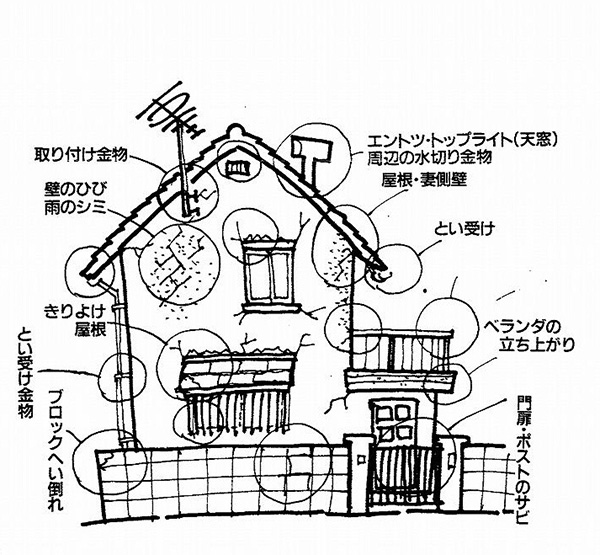 エントツ・トップライト(天窓)
周辺の水切り金物
取り付け金物
屋根・妻側壁
壁のひび
雨のシミ
とい受け
きりよけ
屋根
ベランダの
立ち上がり
とい受け金物
ブロックへい倒れ
門扉・ポストのサビ